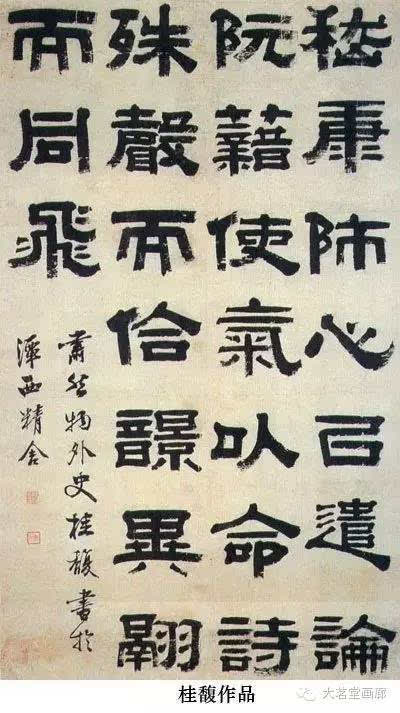 嵇康師心㠯遣論
阮藉使氣以命詩
殊聲而佮異翮
而同飛
肅然物外史桂馥書於
潭西精舍
桂馥作品
大茗堂画廊